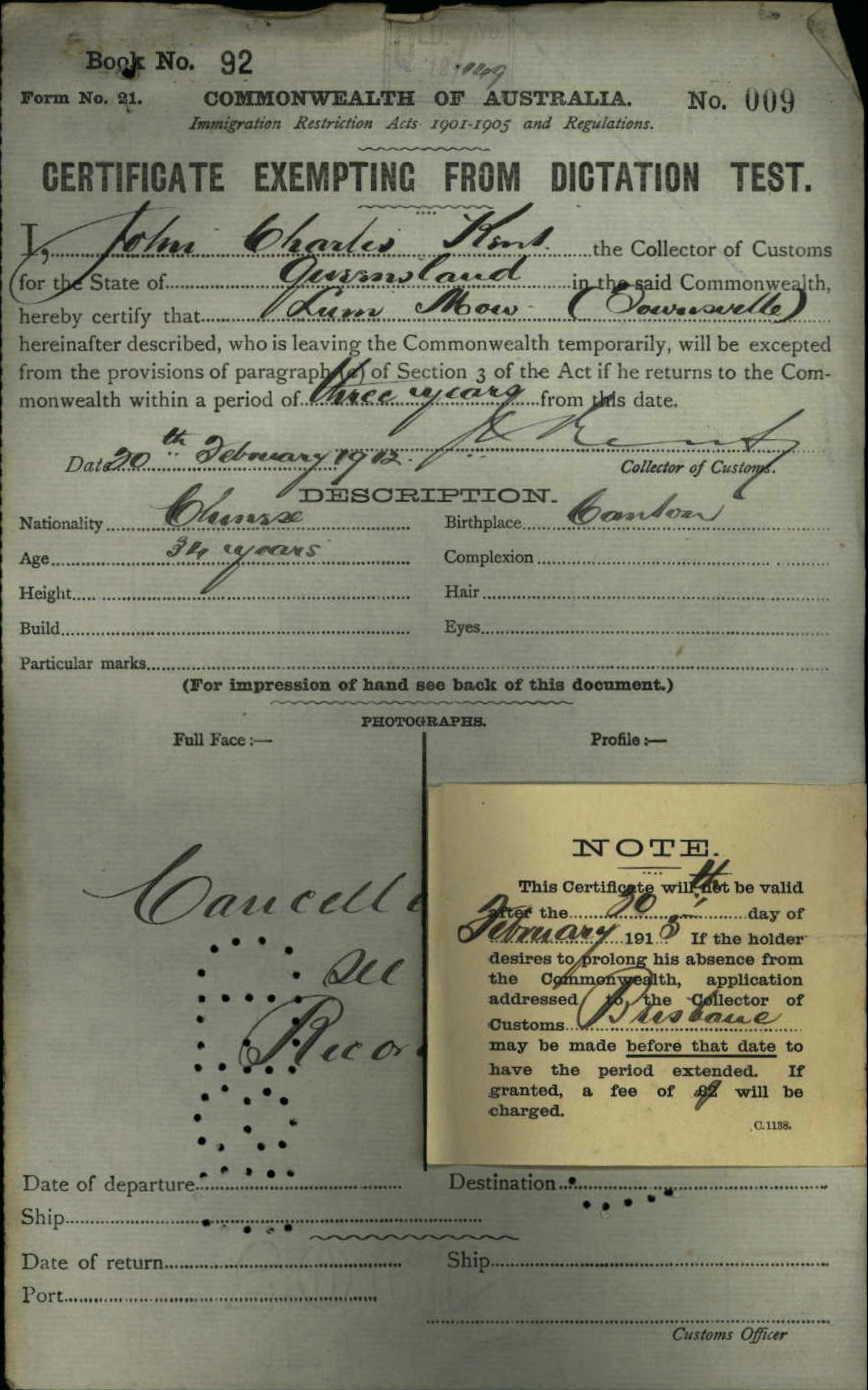 Book No. 92
Form No. 21. COMMONWEALTH OF AUSTRALIA. No. 009
Immigration Restriction Acts 1901-1905 and Regulations.
CERTIFICATE EXEMPTING FROM DICTATION TEST.
I, John Charles Kent the Collector of Customs
for the State of Queensland in the said Commonwealth,
hereby certify that Lum Mow (Townsville)
hereinafter described, who is leaving the Commonwealth temporarily, will be excepted
from the provisions of paragraph of Section 3 of the Act if he returns to the Com-
monwealth within a period of three years from this date.
Date 20th February 1912. Collector of Customs.
DESCRIPTION.
Nationality Chinese Birthplace Canton
Age 34 years Complexion
Height Hair
Build Eyes
Particular marks
(For impression of hand see back of this document.)
PHOTOGRAPHS.
Full Face :— Profile :—
Cancell
See
Recor
NOTE.
This Certificate will not be valid
after the 20th day of
February 191 If the holder
desires to prolong his absence from
the Commonwealth, application
addressed to the Collector of
Customs Brisbane
may be made before that date to
have the period extended. If
granted, a fee of will be
charged.
C.1138.
Date of departure Destination
Ship
Date of return Ship
Port
Customs Officer